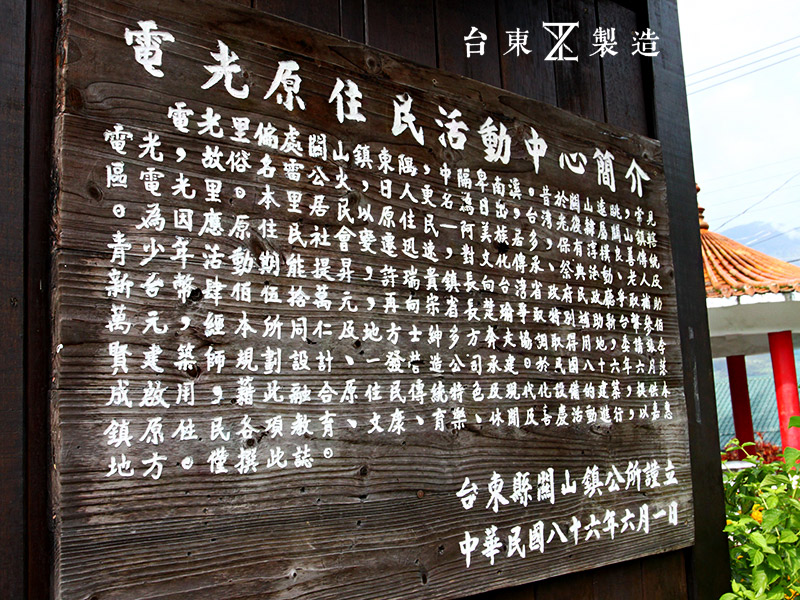 台東製造
電光原住民活動中心簡介
電光里偏處關山鎮東隅，中隔卑南溪。昔於關山遠眺，常見
電光，故俗名雷公火，日人更名為日出，台湾光復隸屬關山鎮轄
區。電光里本里居民以原住民一阿美族居多，保有淳樸良善傳統
。為因應原住民社會變遷迅速，對文化傳承、祭典活動、老人及
青少年活動期能提昇，許瑞貴鎮長向台湾省政府民政廳爭取補助
新台幣肆佰伍拾萬元，再向宋省長楚瑜爭取特別補助新台幣參佰
萬元，經本所同仁及地方士紳多方奔走協調取得用地，委請
賢建築師規劃設計、一發營造公司承建。於民國八十六年六月
成啟用，藉此融合原住民傳統特色及現代化設備的建築，提供本
鎮原住民各項教育、文康、育樂、休閒及喜慶活動進行，以嘉惠
地方。僅撰此誌。
台東縣關山鎮公所謹立
中華民國八十六年六月一日